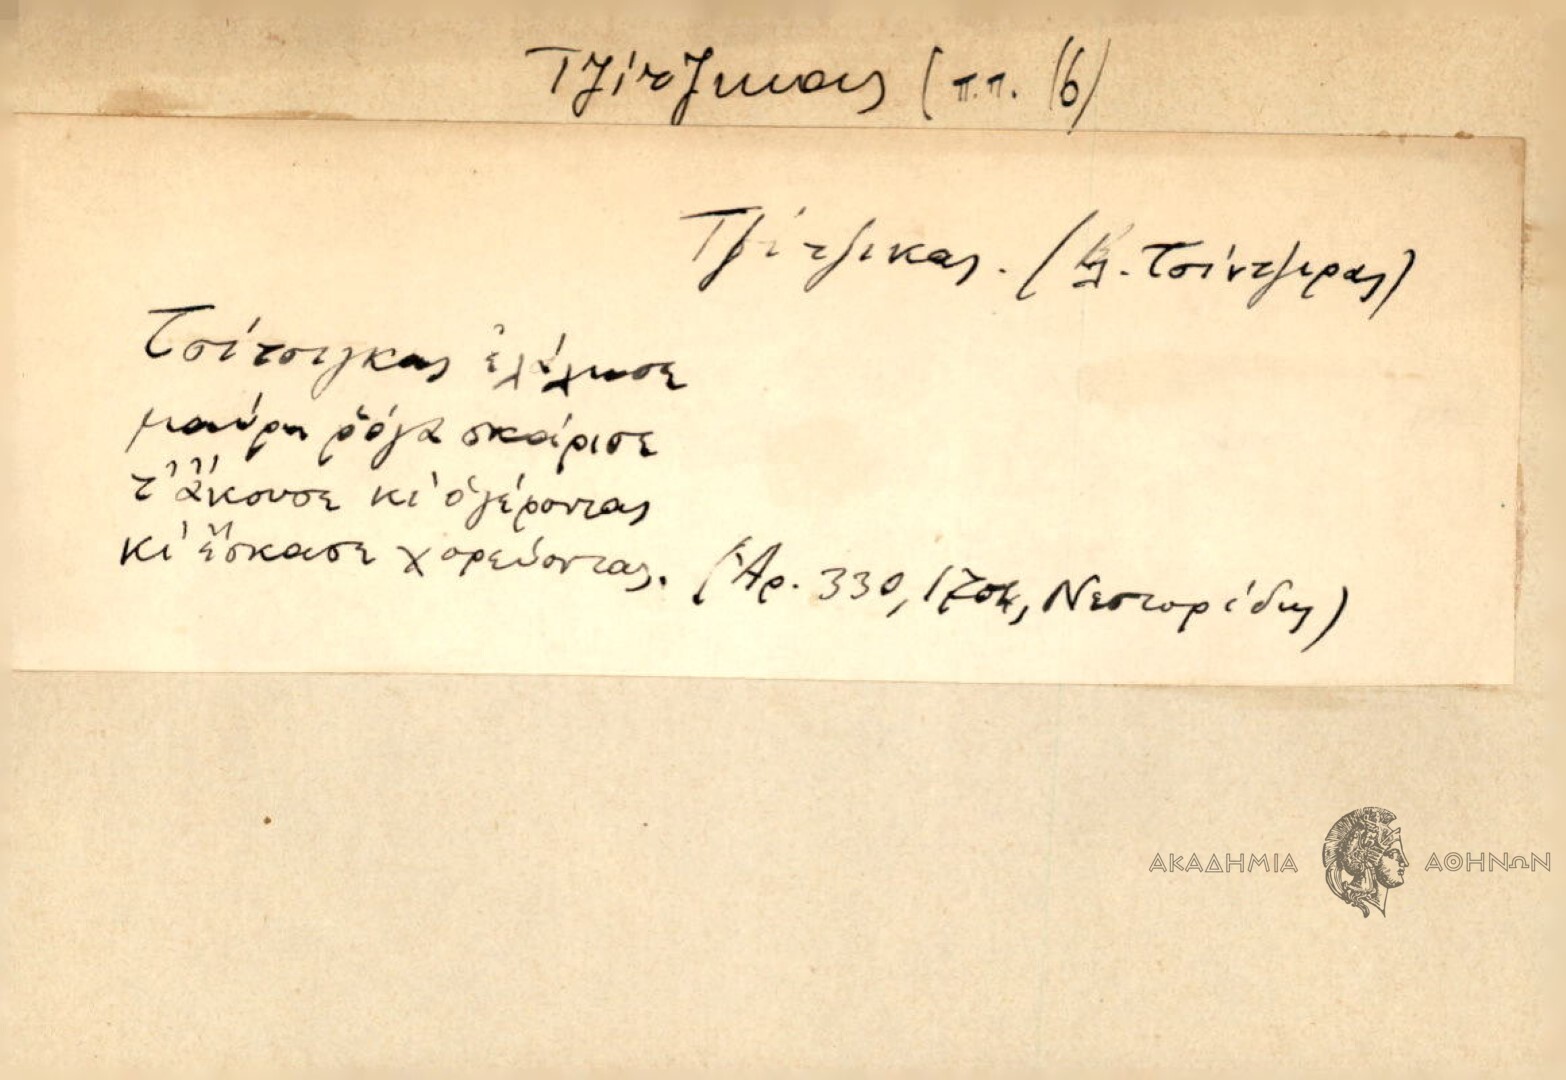 Τζίτζικας (π.π. 16)
Τζίτζικας. (βλ. Τσίντζιρας)
Τσίτσιγκας ἐλάλησε
μαύρη ῥόγα σκάρισε
τ' ἄκουσε κι' ὁ γέροντας
κι' ἔσκασε χορεύοντας. (Ἀρ. 330, Νεστορίδης)
ΑΚΑΔΗΜΙΑ ΑΘΗΝΩΝ